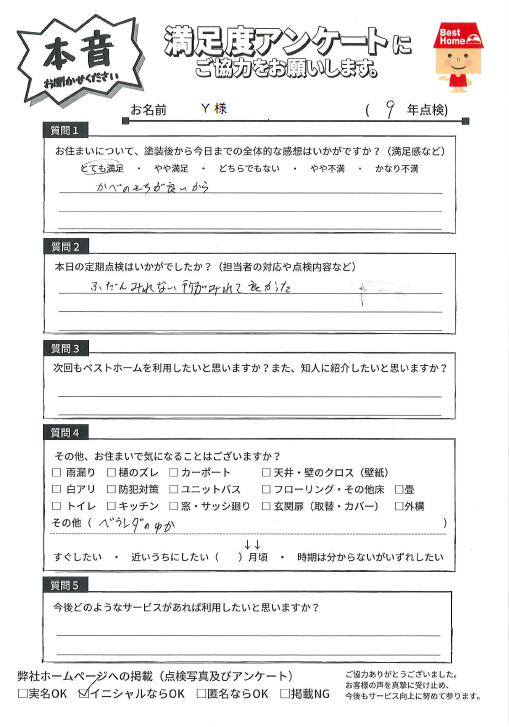 本音
お聞かせください
満足度アンケートに
ご協力をお願いします。
Best
Home
お名前 Y 様 ( 9 年点検)
質問1
お住まいについて、塗装後から今日までの全体的な感想はいかがですか?(満足感など)
とても満足 ・ やや満足 ・ どちらでもない ・ やや不満 ・ かなり不満
かべのもちが良いから
質問2
本日の定期点検はいかがでしたか?(担当者の対応や点検内容など)
ふだんみれない所がみれて良かった
質問3
次回もベストホームを利用したいと思いますか?また、知人に紹介したいと思いますか?
質問4
その他、お住まいで気になることはございますか?
□ 雨漏り □ 樋のズレ □ カーポート □ 天井・壁のクロス(壁紙)
□ 白アリ □ 防犯対策 □ ユニットバス □ フローリング・その他床 □畳
□ トイレ □ キッチン □ 窓・サッシ廻り □ 玄関扉(取替・カバー) □外構
その他 ( ベランダのゆか )
↓↓
すぐしたい ・ 近いうちにしたい ( )月頃 ・ 時期は分からないがいずれしたい
質問5
今後どのようなサービスがあれば利用したいと思いますか?
弊社ホームページへの掲載(点検写真及びアンケート)
□実名OK ☑イニシャルならOK □匿名ならOK □掲載NG
ご協力ありがとうございました。
お客様の声を真摯に受け止め、
今後もサービス向上に努めて参ります。